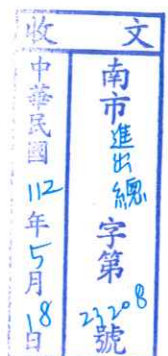 收文
南市進出總字第23208號
中華民國112年5月18日